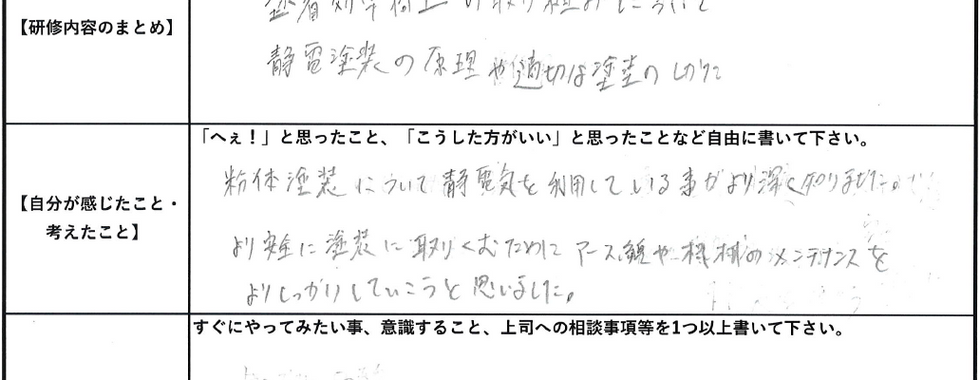 【研修内容のまとめ】
塗着効率向上の取り組みについて
静電塗装の原理や適切な塗装のしかた
「へぇ！」と思ったこと、「こうした方がいい」と思ったことなど自由に書いて下さい。
【自分が感じたこと・
考えたこと】
粉体塗装について静電気を利用している事がより深く知りました。
より安全に塗装に取りくむためにアース線や機材のメンテナンスを
よりしっかりしていこうと思いました。
すぐにやってみたい事、意識すること、上司への相談事項等を1つ以上書いて下さい。